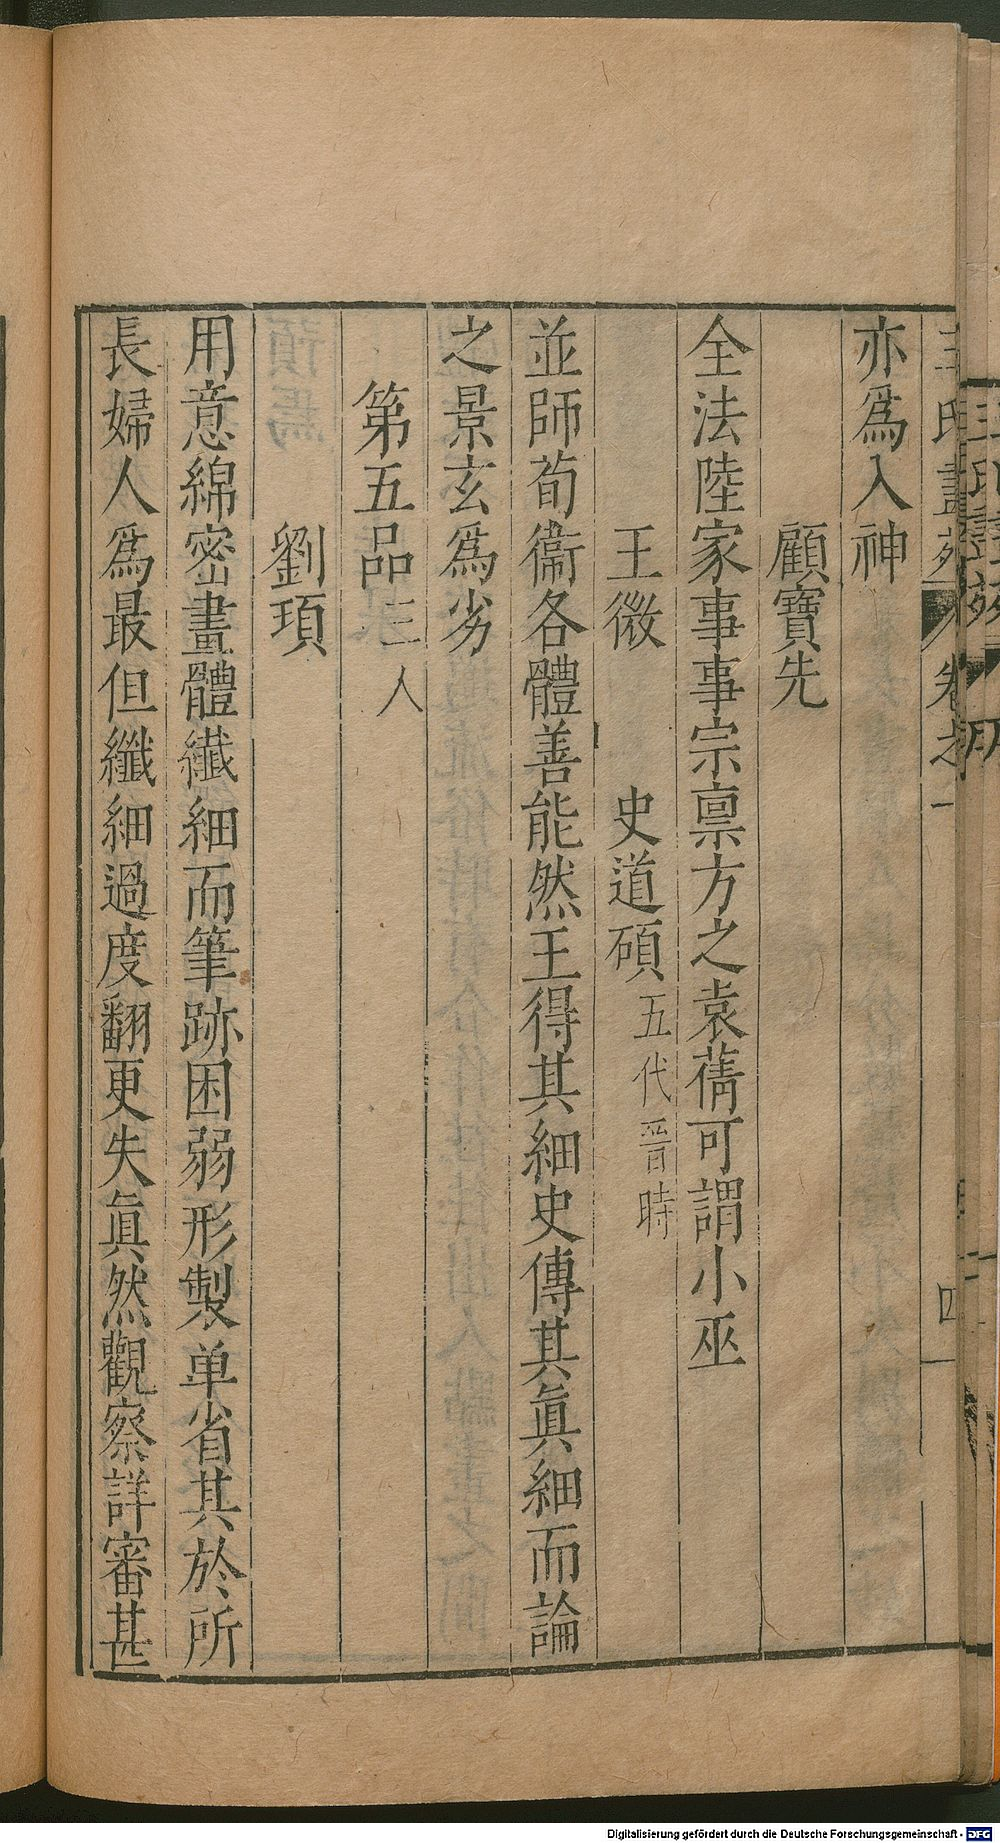 王氏畫苑 卷之一 四
亦爲入神
顧寶先
全法陸家事事宗禀方之袁蒨可謂小巫
王微 史道碩五代晉時
並師荀衞各體善能然王得其細史傳其眞細而論
之景玄爲劣
第五品三人
劉頊
用意綿密畫體纎細而筆跡困弱形製单省其於所
長婦人爲最但纖細過度翻更失眞然觀察詳審甚
Digitalisierung gefördert durch die Deutsche Forschungsgemeinschaft - DFG